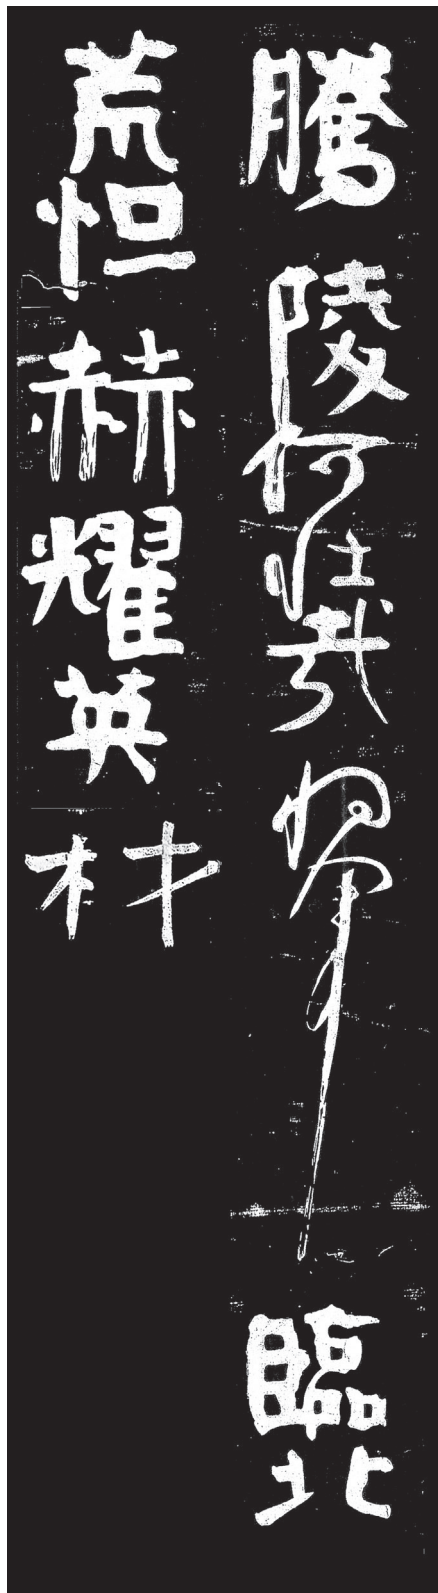 騰陵何壯哉將軍臨北
荒烜赫耀英材